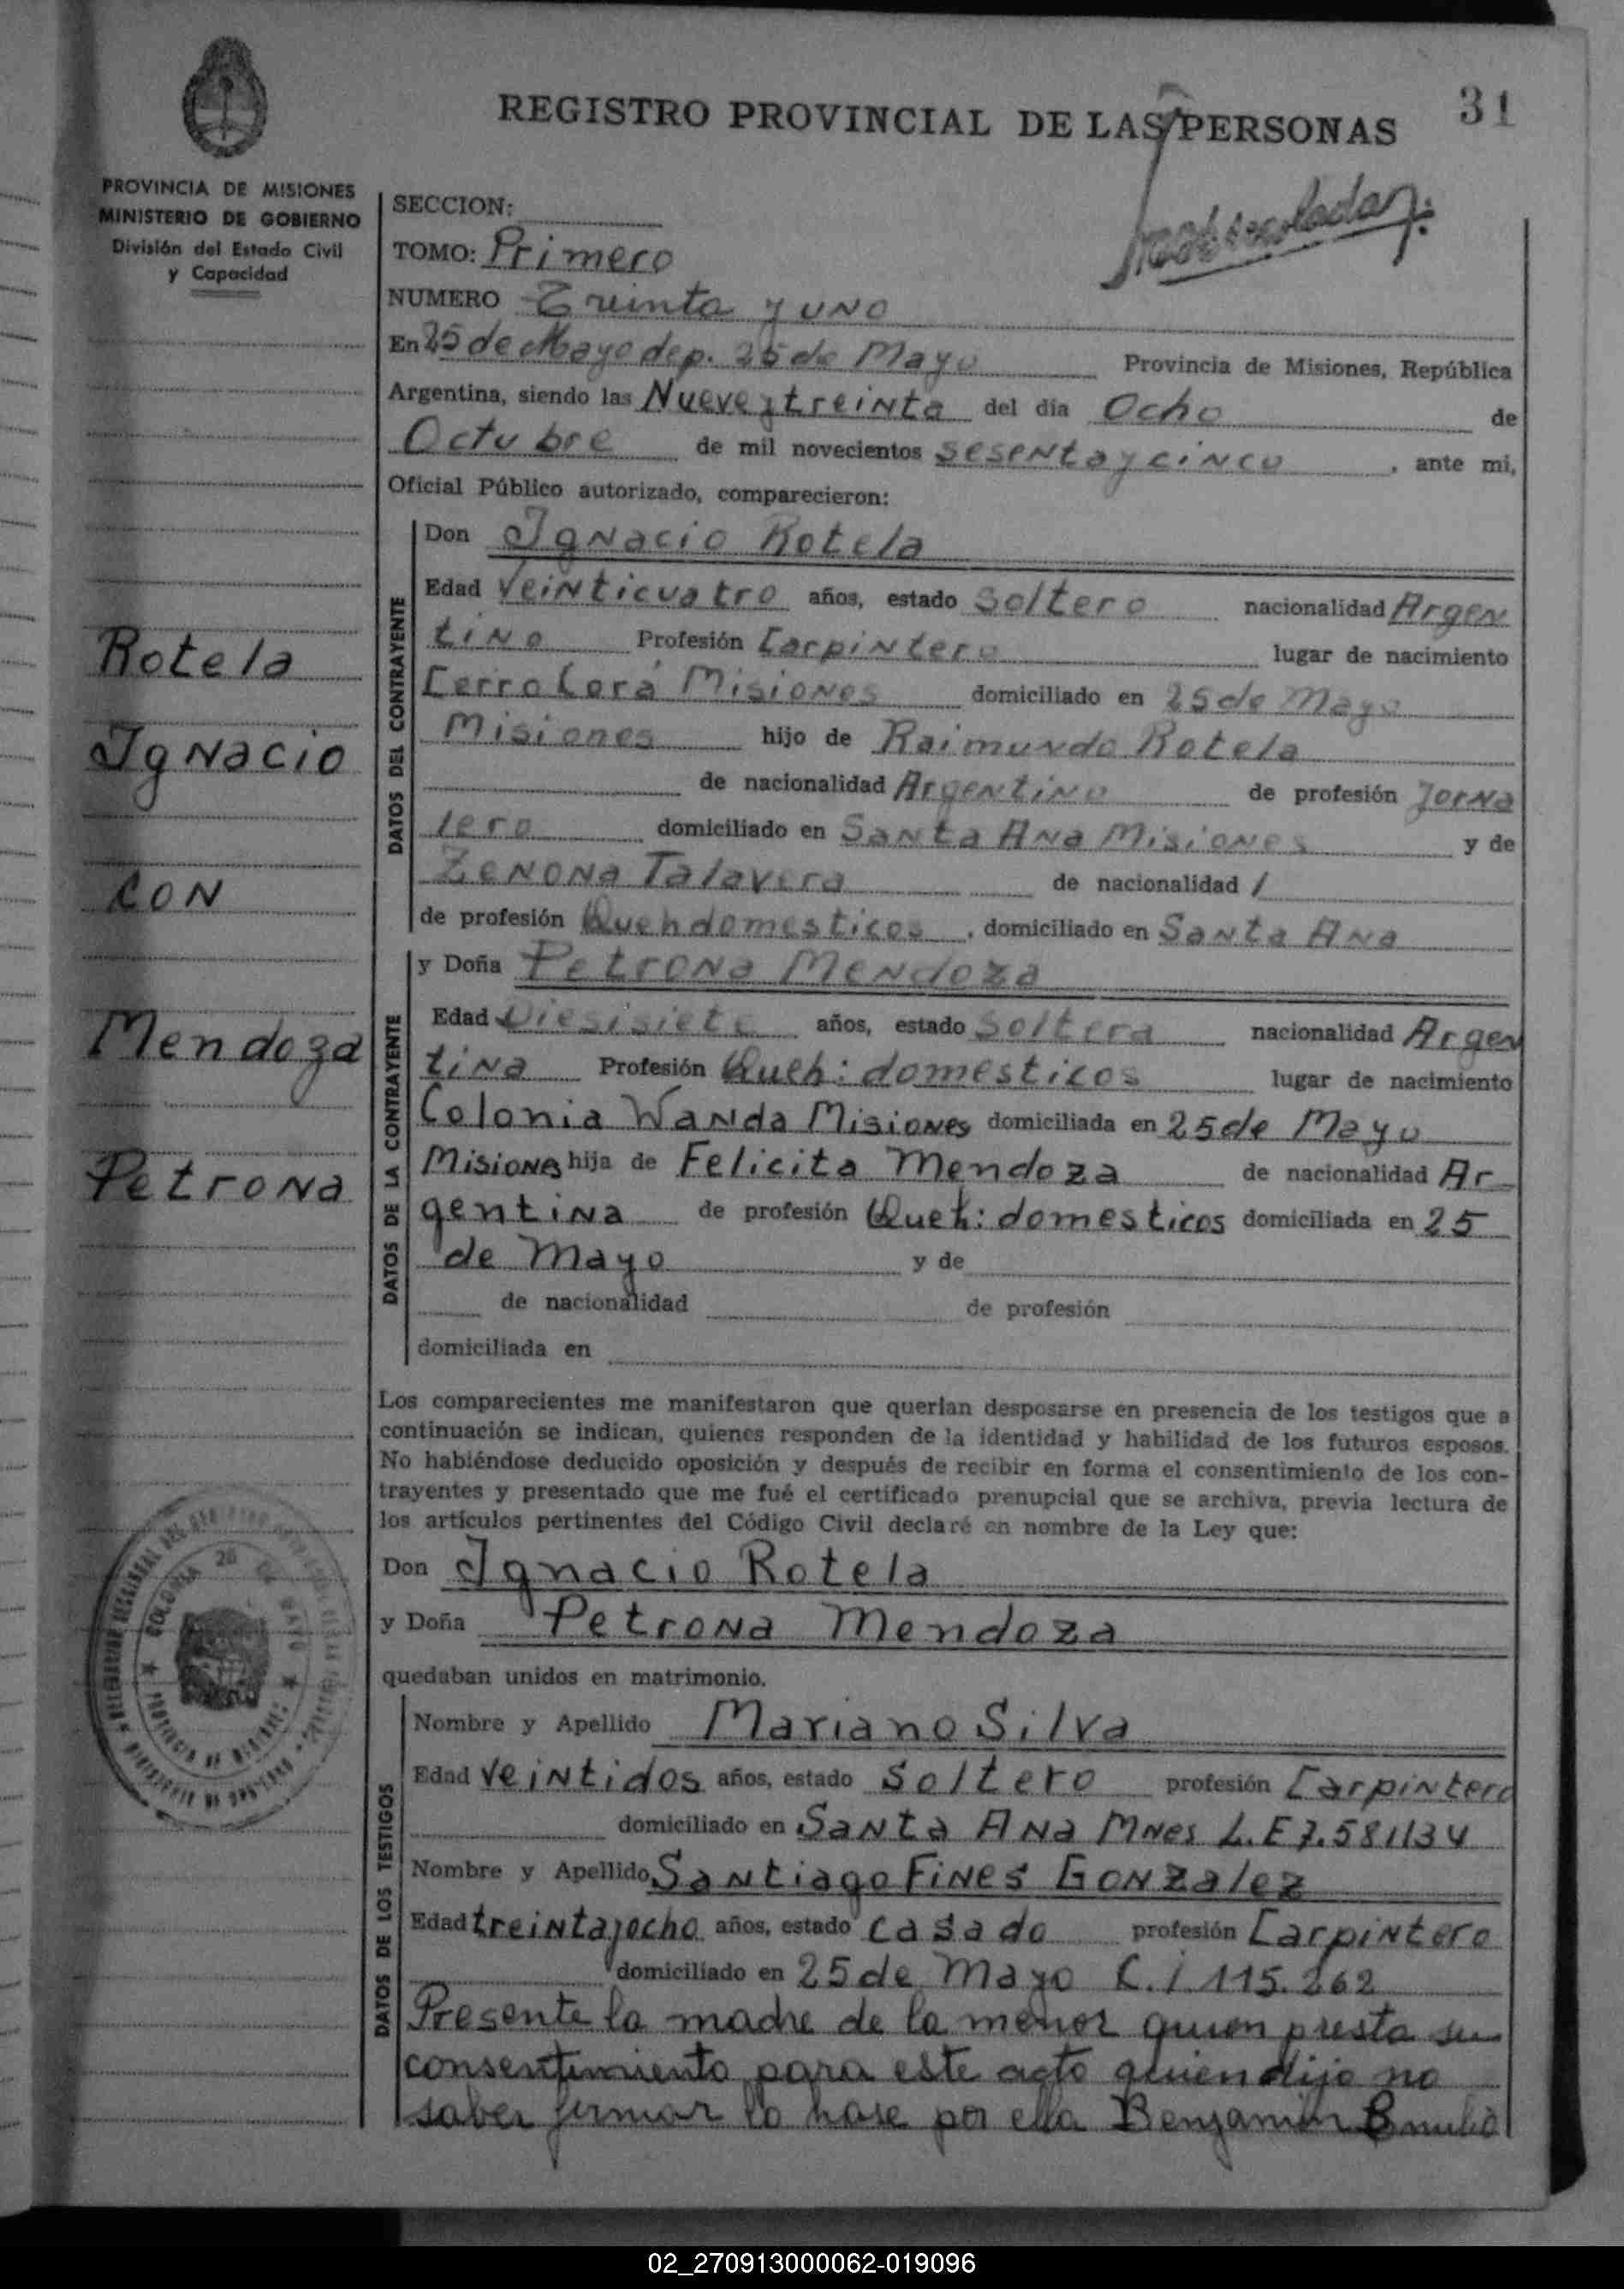 REGISTRO PROVINCIAL DE LAS PERSONAS
31
PROVINCIA DE MISIONES
MINISTERIO DE GOBIERNO
División del Estado Civil
y Capacidad
SECCION:
TOMO: Primero
NUMERO Treinta y uno
En 25 de Mayo dep. 25 de Mayo Provincia de Misiones, República
Argentina, siendo las Nueve y treinta del día Ocho de
Octubre de mil novecientos sesenta y cinco, ante mi,
Oficial Público autorizado, comparecieron:
DATOS DEL CONTRAYENTE
Don Ignacio Rotela
Edad veinticuatro años, estado soltero nacionalidad Argen
tino Profesión Carpintero lugar de nacimiento
Cerro Corá Misiones domiciliado en 25 de Mayo
Misiones hijo de Raimundo Rotela
de nacionalidad Argentino de profesión Jorna
lero domiciliado en Santa Ana Misiones y de
Zenona Talavera de nacionalidad /
de profesión Queh domesticos, domiciliado en Santa Ana
Rotela
Ignacio
con
Mendoza
Petrona
DATOS DE LA CONTRAYENTE
y Doña Petrona Mendoza
Edad Diesisiete años, estado soltera nacionalidad Argen
tina Profesión Queh: domesticos lugar de nacimiento
Colonia Wanda Misiones domiciliada en 25 de Mayo
Misiones hija de Felicita Mendoza de nacionalidad Ar
gentina de profesión Queh: domesticos domiciliada en 25
de Mayo y de
de nacionalidad de profesión
domiciliada en
Los comparecientes me manifestaron que querían desposarse en presencia de los testigos que a
continuación se indican, quienes responden de la identidad y habilidad de los futuros esposos.
No habiéndose deducido oposición y después de recibir en forma el consentimiento de los con-
trayentes y presentado que me fué el certificado prenupcial que se archiva, previa lectura de
los artículos pertinentes del Código Civil declaré en nombre de la Ley que:
Don Ignacio Rotela
y Doña Petrona Mendoza
quedaban unidos en matrimonio.
COLONIA 25 DE MAYO
PROVINCIA DE MISIONES
DATOS DE LOS TESTIGOS
Nombre y Apellido Mariano Silva
Edad veintidos años, estado soltero profesión Carpintero
domiciliado en Santa Ana Mnes L.E 7.581134
Nombre y Apellido Santiago Fines Gonzalez
Edad treinta y ocho años, estado casado profesión Carpintero
domiciliado en 25 de Mayo C.i 115.262
Presente la madre de la menor quien presta su
consentimiento para este acto quien dijo no
saber firmar lo hase por ella Benjamin Emilio
02_270913000062-019096